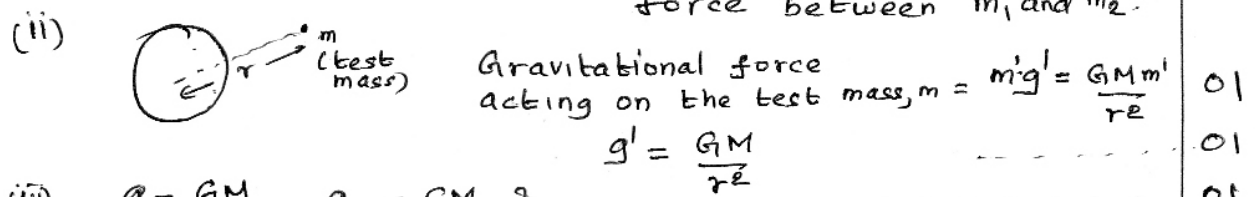 force between m₁ and m₂.
(ii)
m
(test
mass)
r
Gravitational force
acting on the test mass, m = m'g' = GMm'/r² 01
g' = GM/r² - - - - - 01
(iii) g = GM